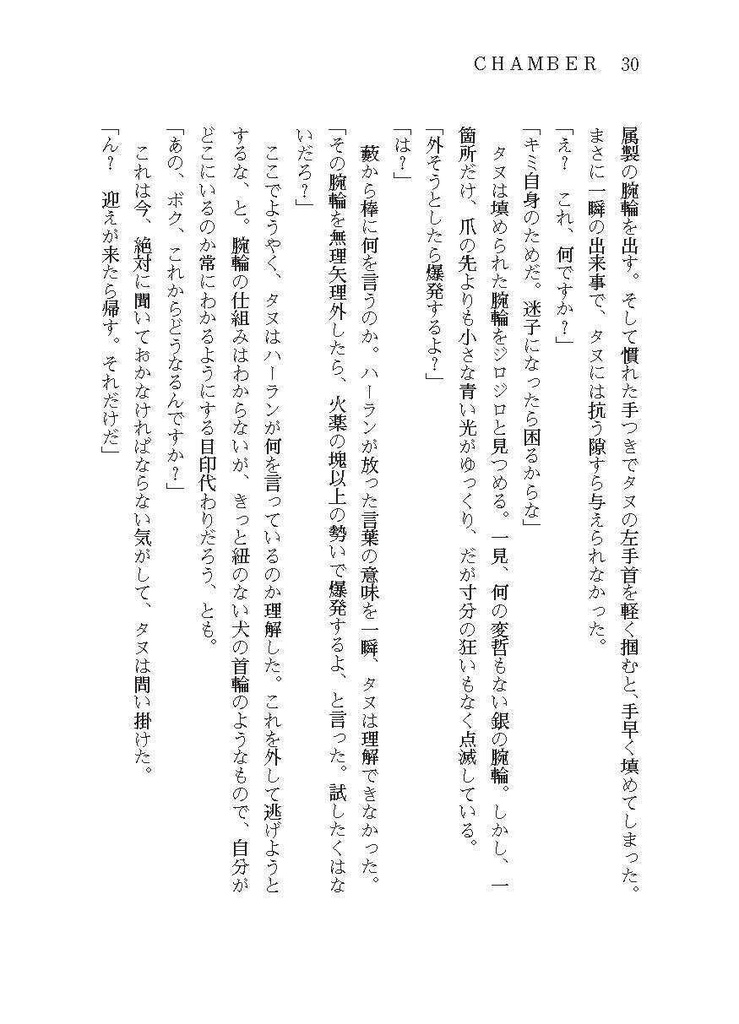 CHAMBER 30
属製の腕輪を出す。そして慣れた手つきでタヌの左手首を軽く掴むと、手早く填めてしまった。
まさに一瞬の出来事で、タヌには抗う隙すら与えられなかった。
「え？　これ、何ですか？」
「キミ自身のためだ。迷子になったら困るからな」
　タヌは填められた腕輪をジロジロと見つめる。一見、何の変哲もない銀の腕輪。しかし、一
箇所だけ、爪の先よりも小さな青い光がゆっくり、だが寸分の狂いもなく点滅している。
「外そうとしたら爆発するよ？」
「は？」
　藪から棒に何を言うのか。ハーランが放った言葉の意味を一瞬、タヌは理解できなかった。
「その腕輪を無理矢理外したら、火薬の塊以上の勢いで爆発するよ、と言った。試したくはな
いだろ？」
　ここでようやく、タヌはハーランが何を言っているのか理解した。これを外して逃げようと
するな、と。腕輪の仕組みはわからないが、きっと紐のない犬の首輪のようなもので、自分が
どこにいるのか常にわかるようにする目印代わりだろう、とも。
「あの、ボク、これからどうなるんですか？」
　これは今、絶対に聞いておかなければならない気がして、タヌは問い掛けた。
「ん？　迎えが来たら帰す。それだけだ」